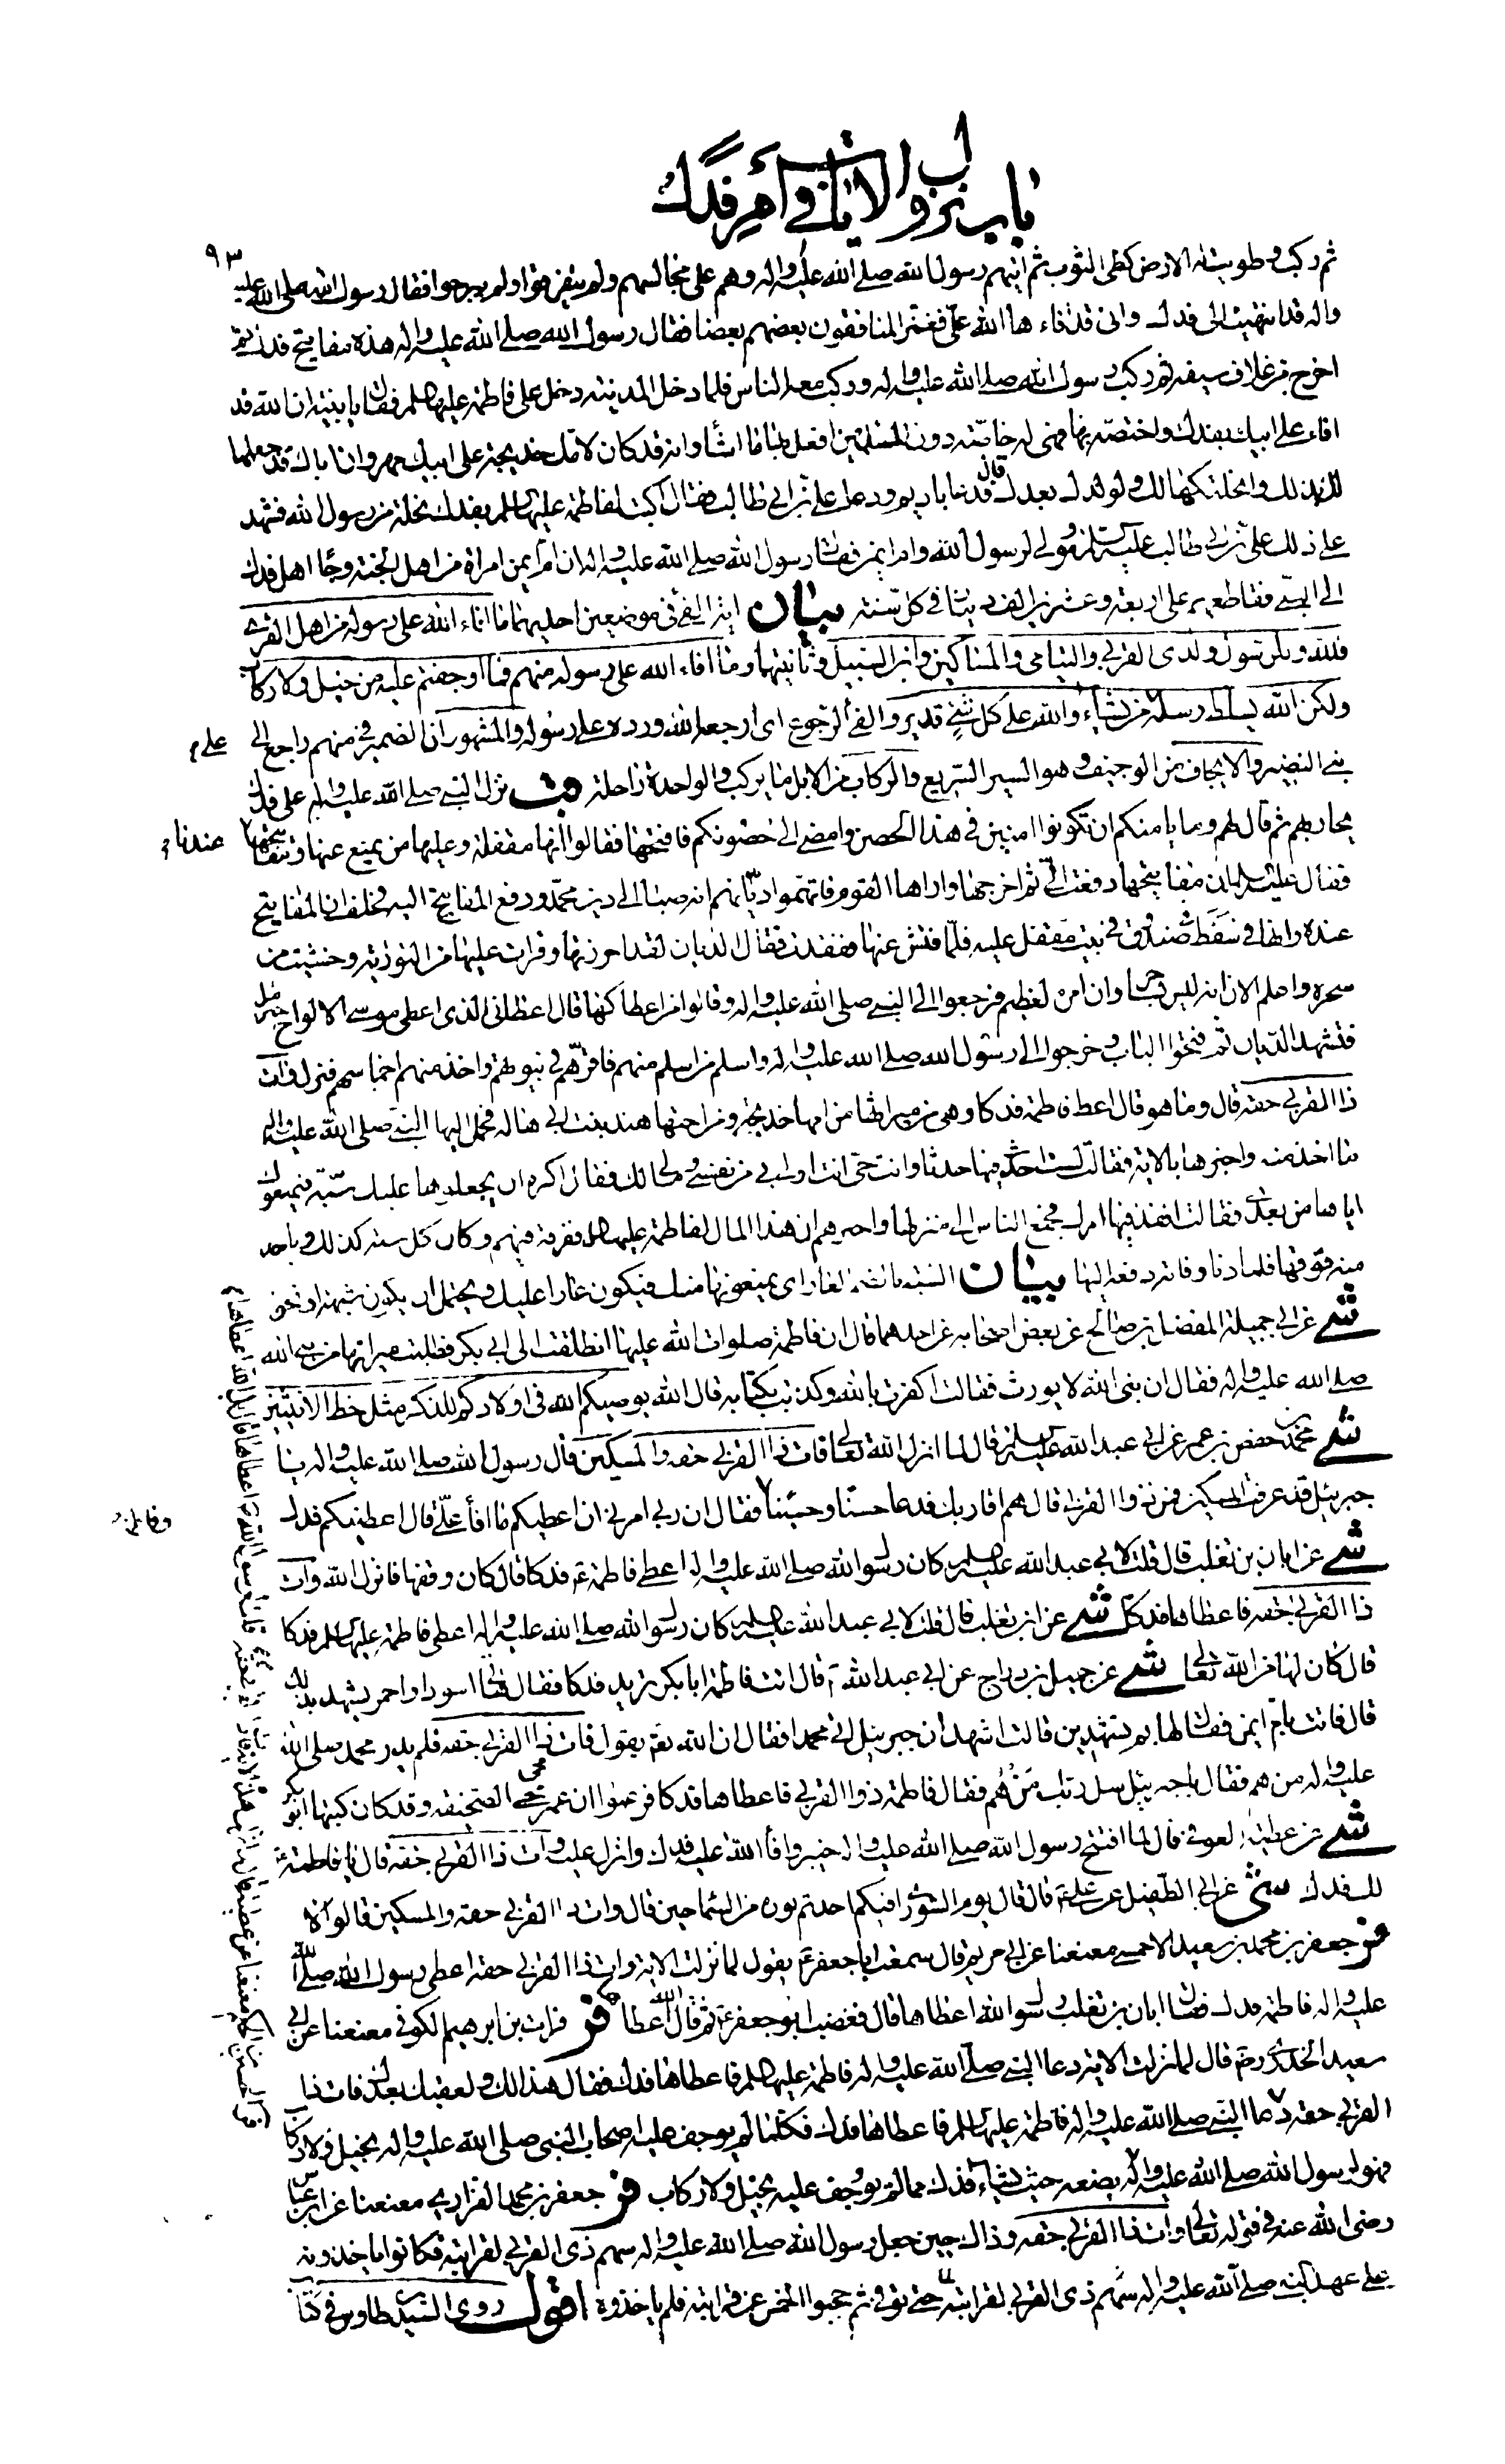 باب نزول الايات في أمر فدك
٩٣
ثم ركب وطويت له الارض كطي الثوب ثم اتيهم رسول الله صلى الله عليه واله وهم على مجالسهم ولم يتفرقوا ولم يبرحوا فقال رسول الله صلى الله عليه
واله قد انتهيت الى فدك واني قد افاءها الله علي فغمز المنافقون بعضهم بعضا فقال رسول الله صلى الله عليه واله هذه مفاتيح فدك ثم
اخرج من غلاف سيفه ثم ركب رسول الله صلى الله عليه واله وركب معه الناس فلما دخل المدينة دخل على فاطمة عليها السلم فقال يا بنية ان الله قد
افاء على ابيك بفدك واختصه بها فهي له خاصة دون المسلمين افعل بها ما اشاء وانه قد كان لامك خديجة على ابيك مهر وان اباك قد جعلها
لك بذلك وانحلتكها لك ولولدك بعدك قال فدعا باديم ودعا علي بن ابي طالب فقال اكتب لفاطمة عليها السلم بفدك نحلة من رسول الله فشهد
على ذلك علي بن ابي طالب عليه السلم ومولى لرسول الله وام ايمن فقال رسول الله صلى الله عليه واله ان ام ايمن امراة من اهل الجنة وجاء اهل فدك
الى النبي فقاطعهم على اربعة وعشرين الف دينار في كل سنة بيان اية الفئ في موضعين احديهما ما افاء الله على رسوله من اهل القرى
فلله وللرسول ولذي القربى واليتامى والمساكين وابن السبيل وثانيتهما وما افاء الله على رسوله منهم فما اوجفتم عليه من خيل ولا ركاب
ولكن الله يسلط رسله على من يشاء والله على كل شئ قدير والفئ الرجوع اي ارجعه الله ورده على رسوله والمشهور ان الضمير في منهم راجع الى
بني النضير والايجاف من الوجيف وهو السير السريع والركاب من الابل ما يركب والواحدة راحلة قب نزل النبي صلى الله عليه واله على فدك
يحاربهم ثم قال لهم وما يامنكم ان تكونوا امنين في هذا الحصن وامضي الى حصونكم فافتحها فقالوا انها مقفلة وعليها من يمنع عنها ومفاتيحها عندنا
فقال عليه السلم ان مفاتيحها دفعت الي ثم اخرجها واراها القوم فاتهموا ديانهم انه صبا الى دين محمد ودفع المفاتيح اليه فحلف ان المفاتيح
عنده وانها في سفط في صندوق في بيت مقفل عليه فلما فتش عنها ففقدت فقال الديان لقد احرزتها وقرات عليها من التورية وخشيت من
سحره واعلم الان انه ليس بساحر وان امره لعظيم فرجعوا الى النبي صلى الله عليه واله وقالوا من اعطاكها قال اعطاني الذي اعطى موسى الالواح جبرئيل
فتشهد الديان ثم فتحوا الباب وخرجوا الى رسول الله صلى الله عليه واله واسلم من اسلم منهم فاقرهم في بيوتهم واخذ منهم اخماسهم فنزل وات
ذا القربى حقه قال وما هو قال اعط فاطمة فدكا وهي من ميراثها من امها خديجة ومن اختها هند بنت ابي هالة فحمل اليها النبي صلى الله عليه واله
ما اخذ منه واخبرها بالاية فقالت لست احدث فيها حدثا وانت حي انت اولى بي من نفسي ومالي لك فقال اكره ان يجعلوها عليك سبة فيمنعوك
اياها من بعدي فقالت انفذ فيها امرك فجمع الناس الى منزلها واخبرهم ان هذا المال لفاطمة عليها السلم ففرقه فيهم وكان كل سنة كذلك وياخذ
منه قوتها فلما دنا وفاته دفعه اليها بيان السبة بالضم العار اي يمنعونها منك فيكون عارا عليك ويحتمل ان يكون شبهة
شى عن ابي جميلة المفضل بن صالح عن بعض اصحابه عن احدهما قال ان فاطمة صلوات الله عليها انطلقت الى ابي بكر فطلبت ميراثها من نبي الله
صلى الله عليه واله فقال ان نبي الله لا يورث فقالت اكفرت بالله وكذبت بكتابه قال الله يوصيكم الله في اولادكم للذكر مثل حظ الانثيين
شى محمد بن حفص بن عمر عن ابي عبد الله عليه السلم قال لما انزل الله تعالى فات ذا القربى حقه والمسكين قال رسول الله صلى الله عليه واله يا
جبرئيل قد عرفت المسكين فمن ذوا القربى قال هم اقاربك فدعا حسنا وحسينا وفاطمة فقال ان ربي امرني ان اعطيكم ما افاء علي قال اعطيتكم فدك
شى عن ابان بن تغلب قال قلت لابي عبد الله عليه السلم كان رسول الله صلى الله عليه واله اعطى فاطمة ع فدكا قال كان وقفها فانزل الله وات
ذا القربى حقه فاعطاها فدكا شى عن ابن تغلب قال قلت لابي عبد الله عليه السلم كان رسول الله صلى الله عليه واله اعطى فاطمة عليها السلم فدكا
قال كان لها من الله تعالى شى عن جميل بن دراج عن ابي عبد الله ع قال اتت فاطمة ابا بكر تريد فدكا فقال هاتي اسود او احمر يشهد بذلك
قال فاتت بام ايمن فقال لها بم تشهدين قالت اشهد ان جبرئيل اتى محمدا فقال ان الله تعالى يقول فات ذا القربى حقه فلم يدر محمد صلى الله
عليه واله من هم فقال يا جبرئيل سل ربك من هم فقال فاطمة ذوا القربى فاعطاها فدكا فزعموا ان عمر محى الصحيفة وقد كان كتبها ابو بكر
شى عن عطية العوفي قال لما افتتح رسول الله صلى الله عليه واله خيبر وافاء الله عليه فدك وانزل عليه وات ذا القربى حقه قال يا فاطمة
لك فدك شى عن ابي الطفيل عن علي ع قال قال يوم الشورى افيكم احد تم نوره من السماء حين قال وات ذا القربى حقه والمسكين قالوا لا
فر جعفر بن محمد بن سعيد الاحمسي معنعنا عن ابي مريم قال سمعت ابا جعفر ع يقول لما نزلت الاية وات ذا القربى حقه اعطى رسول الله صلى الله
عليه واله فاطمة فدك فقال ابان بن تغلب رسول الله اعطاها قال فغضب ابو جعفر ع ثم قال الله اعطاها فر فرات بن ابرهيم الكوفي معنعنا عن ابي
سعيد الخدري رض قال لما نزلت الاية دعا النبي صلى الله عليه واله فاطمة عليها السلم فاعطاها فدك فقال هذا لك ولعقبك بعدك فات ذا
القربى حقه دعا النبي صلى الله عليه واله فاطمة عليها السلم فاعطاها فدك فكلما لم يوجف عليه اصحاب النبي صلى الله عليه واله بخيل ولا ركاب
فهو لرسول الله صلى الله عليه واله يضعه حيث يشاء وفدك مما لم يوجف عليه بخيل ولا ركاب فر جعفر بن محمد الفزاري معنعنا عن ابن عباس
رضي الله عنه في قوله تعالى وات ذا القربى حقه وذاك حين جعل رسول الله صلى الله عليه واله سهم ذي القربى لقرابته فكانوا ياخذونه
على عهد النبي صلى الله عليه واله سهم ذي القربى لقرابته حتى توفي ثم حجبوا الخمس عن قرابته فلم ياخذوه اقول روى السيد بن طاوس في كتاب